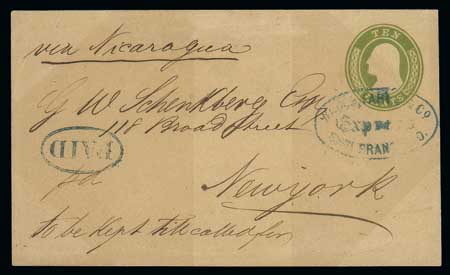 via Nicaragua
TEN
G W Schenkberg Esq
118 Broad Street
EXP
SAN FRAN
PAID
New york
to be kept till called for